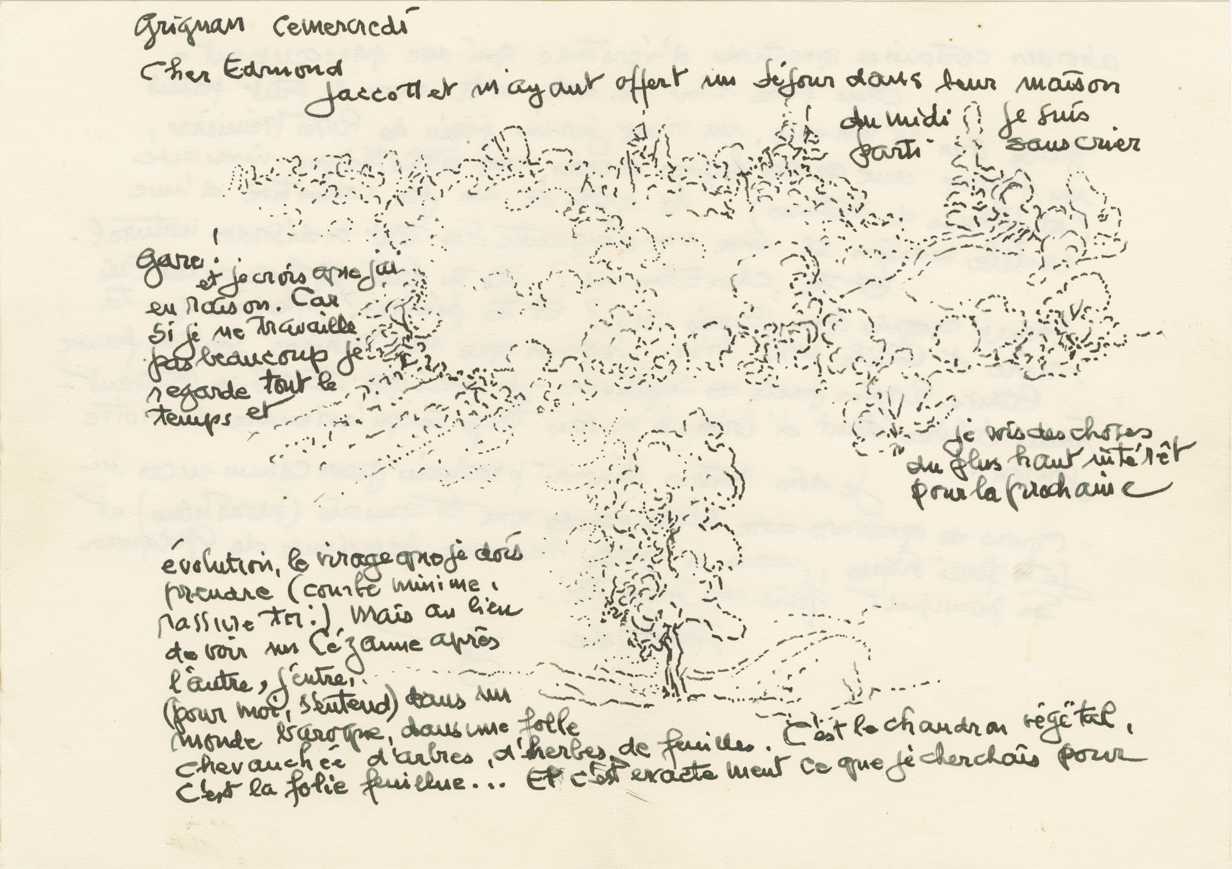 Grignan ce mercredi
Cher Edmond
Jaccottet m'ayant offert un séjour dans leur maison
du midi je suis
parti sans crier
gare
et je crois que j'ai
eu raison. Car
si je ne travaille
pas beaucoup je
regarde tout le
temps et
je vois des choses
du plus haut intérêt
pour la prochaine
évolution, le virage que je dois
prendre (courbe minime,
rassure-toi!) Mais au lieu
de voir un Cézanne après
l'autre, j'entre,
(pour moi, s'entend) dans un
monde baroque, dans une folle
chevauchée d'arbres, d'herbes, de feuilles. C'est le chaudron végétal,
C'est la folie feuillue... Et c'est exactement ce que je cherchais pour